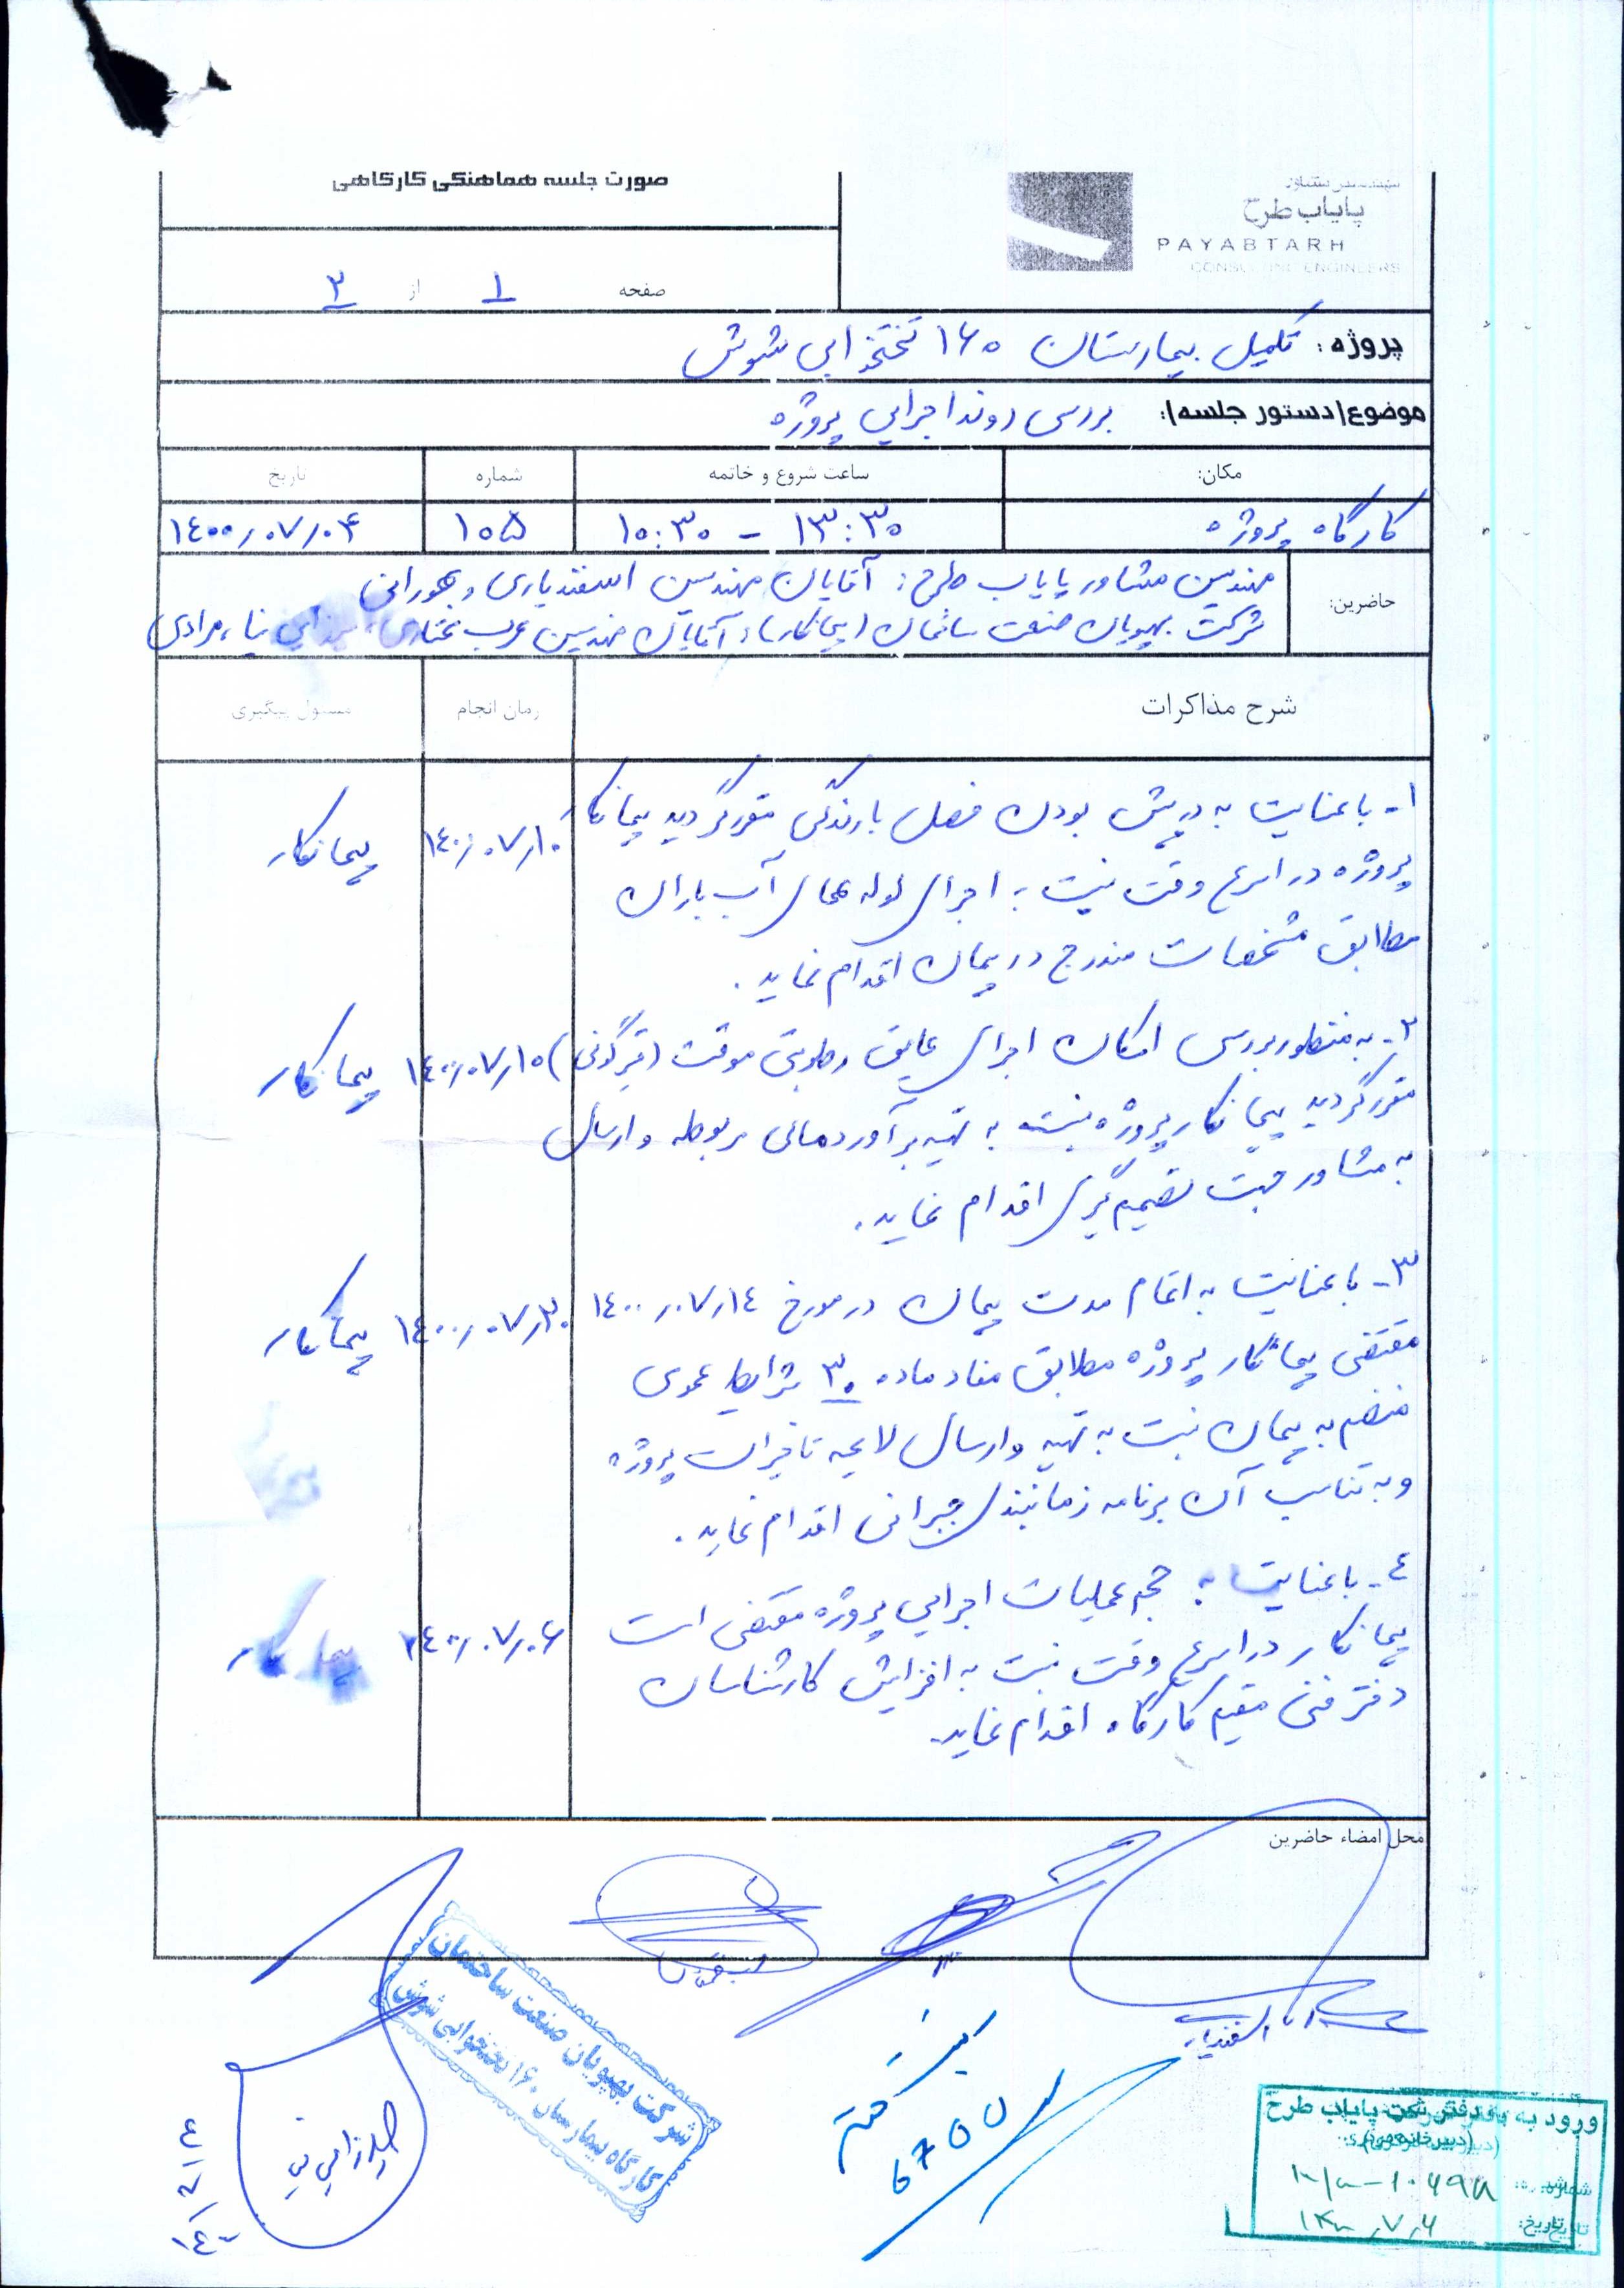 صورت جلسه هماهنگی کارگاهی
مهندسین مشاور
پایاب طرح
PAYABTARH
CONSULTING ENGINEERS
صفحه ۱ از ۳
پروژه: تکمیل بیمارستان ۱۶۰ تختخوابی شوش
موضوع(دستور جلسه): بررسی روند اجرایی پروژه
مکان: ساعت شروع و خاتمه شماره تاریخ
کارگاه پروژه ۱۰:۳۰ - ۱۳:۳۰ ۱۰۵ ۱۴۰۰/۰۷/۰۴
حاضرین: مهندسین مشاور پایاب طرح: آقایان مهندسین اسفندیاری و بهورانی
شرکت بهپویان صنعت ساختمان (پیمانکار): آقایان مهندسین عرب مختاری، میرزایی نیا، مرادی
شرح مذاکرات زمان انجام مسئول پیگیری
۱- با عنایت به در پیش بودن فصل بارندگی مقرر گردید پیمانکار ۱۴۰۰/۰۷/۱۰ پیمانکار
پروژه در اسرع وقت نسبت به اجرای لوله های آب باران
مطابق مشخصات مندرج در پیمان اقدام نماید.
۲- به منظور بررسی امکان اجرای عایق رطوبتی موقت (قیرگونی) ۱۴۰۰/۰۷/۱۵ پیمانکار
مقرر گردید پیمانکار پروژه نسبت به تهیه برآورد مالی مربوطه و ارسال
به مشاور جهت تصمیم گیری اقدام نماید.
۳- با عنایت به اتمام مدت پیمان در مورخ ۱۴۰۰/۰۷/۱۴ ۱۴۰۰/۰۷/۲۰ پیمانکار
مقتضی پیمانکار پروژه مطابق مفاد ماده ۳۰ شرایط عمومی
منضم به پیمان نسبت به تهیه و ارسال لایحه تاخیرات پروژه
و به تناسب آن برنامه زمانبندی جبرانی اقدام نماید.
۴- با عنایت به حجم عملیات اجرایی پروژه مقتضی است ۱۴۰۰/۰۷/۰۶ پیمانکار
پیمانکار در اسرع وقت نسبت به افزایش کارشناسان
دفتر فنی مقیم کارگاه اقدام نماید.
محل امضاء حاضرین
اسفندیاری
شرکت بهپویان صنعت ساختمان
کارگاه بیمارستان ۱۶۰ تختخوابی شوش
میرزایی نیا
ورود به دفتر فنی پایاب طرح
(دبیرخانه مرکزی)
شماره:
تاریخ: